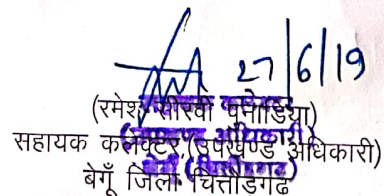 27/6/19
(रमेश सीरवी पुनाडिया)
सहायक कलेक्टर (उपखण्ड अधिकारी)
बेगूँ जिला चित्तौडगढ